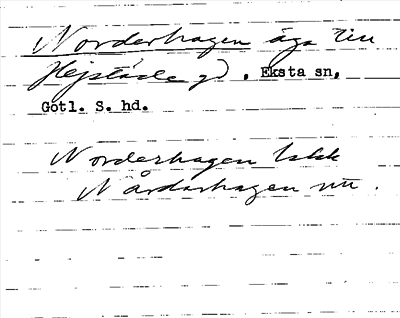 Norderhagen äga till
Hejslärle gd. Eksta sn,
Gotl. S. hd.
Norderhagen
Nårdarhagen